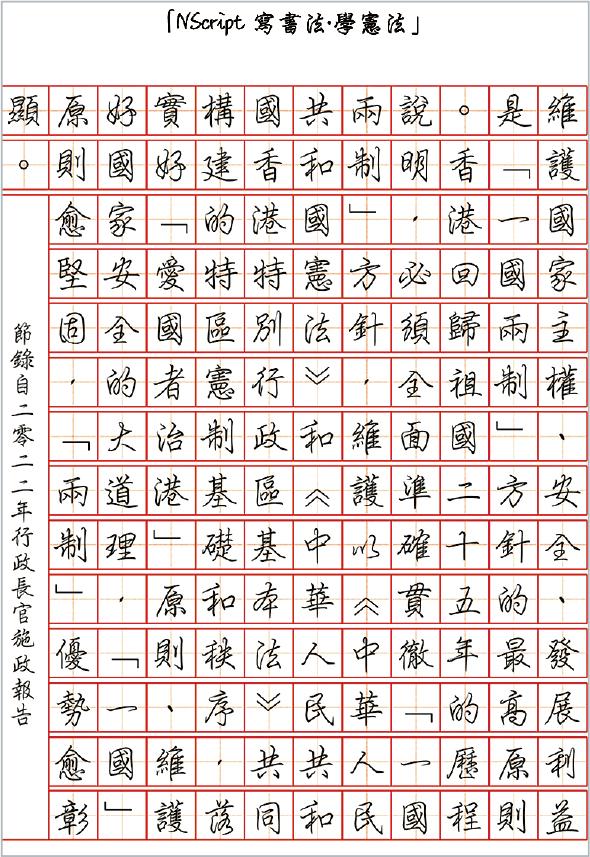 「NScript 寫書法·學憲法」
維護國家主權、安全、發展利益
是「一國兩制」方針的最高原則
。香港回歸祖國二十五年的歷程
說明，必須全面準確貫徹「一國
兩制」方針，維護以《中華人民
共和國憲法》和《中華人民共和
國香港特別行政區基本法》共同
構建的特區憲制基礎和秩序，落
實好「愛國者治港」原則、維護
好國家安全的大道理，「一國」
原則愈堅固，「兩制」優勢愈彰
顯。
節錄自二零二二年行政長官施政報告